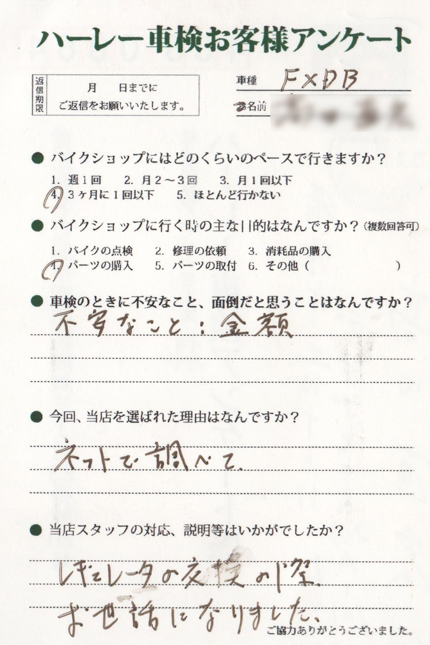 ハーレー車検お客様アンケート
返信期限
月 日までに
ご返信をお願いいたします。
車種 FXDB
お名前
● バイクショップにはどのくらいのペースで行きますか?
1. 週1回 2. 月2〜3回 3. 月1回以下
4. 3ヶ月に1回以下 5. ほとんど行かない
● バイクショップに行く時の主な目的はなんですか?(複数回答可)
1. バイクの点検 2. 修理の依頼 3. 消耗品の購入
4. パーツの購入 5. パーツの取付 6. その他( )
● 車検のときに不安なこと、面倒だと思うことはなんですか?
不安なこと:金額
● 今回、当店を選ばれた理由はなんですか?
ネットで調べて。
● 当店スタッフの対応、説明等はいかがでしたか?
レギュレータの交換の際、
お世話になりました。
ご協力ありがとうございました。